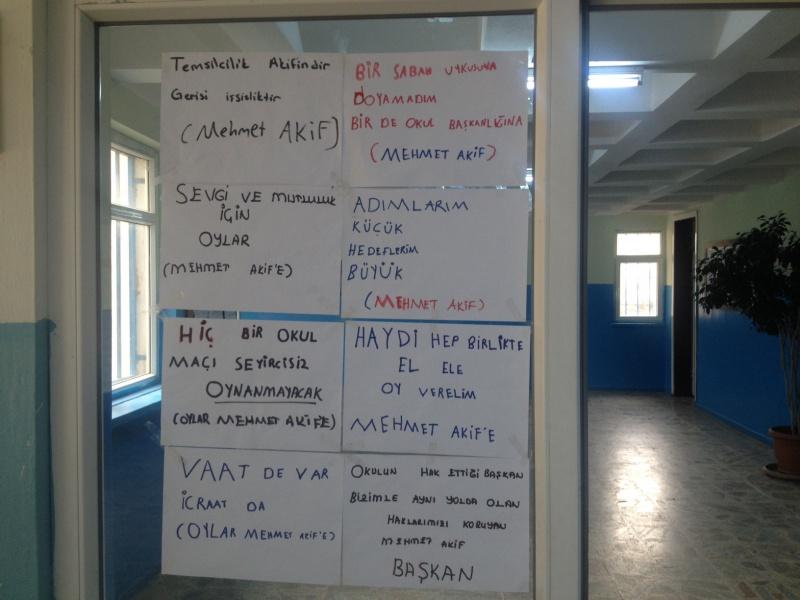 Temsilcilik Akifindir
Gerisi işsizliktir
(Mehmet AKİF)
BİR SABAH UYKUSUNA
DOYAMADIM
BİR DE OKUL BAŞKANLIĞINA
(MEHMET AKİF)
SEVGİ VE MUTLULUK
İÇİN
OYLAR
(MEHMET AKİF'E)
ADIMLARIM
KÜÇÜK
HEDEFLERİM
BÜYÜK
(MEHMET AKİF)
HİÇ BİR OKUL
MAÇI SEYİRCİSİZ
OYNANMAYACAK
(OYLAR MEHMET AKİF'E)
HAYDİ HEP BİRLİKTE
EL ELE
OY VERELİM
MEHMET AKİF'E
VAAT DE VAR
İCRAAT DA
(OYLAR MEHMET AKİF'E)
OKULUN HAK ETTİĞİ BAŞKAN
BİZİMLE AYNI YOLDA OLAN
HAKLARIMIZI KORUYAN
MEHMET AKİF
BAŞKAN